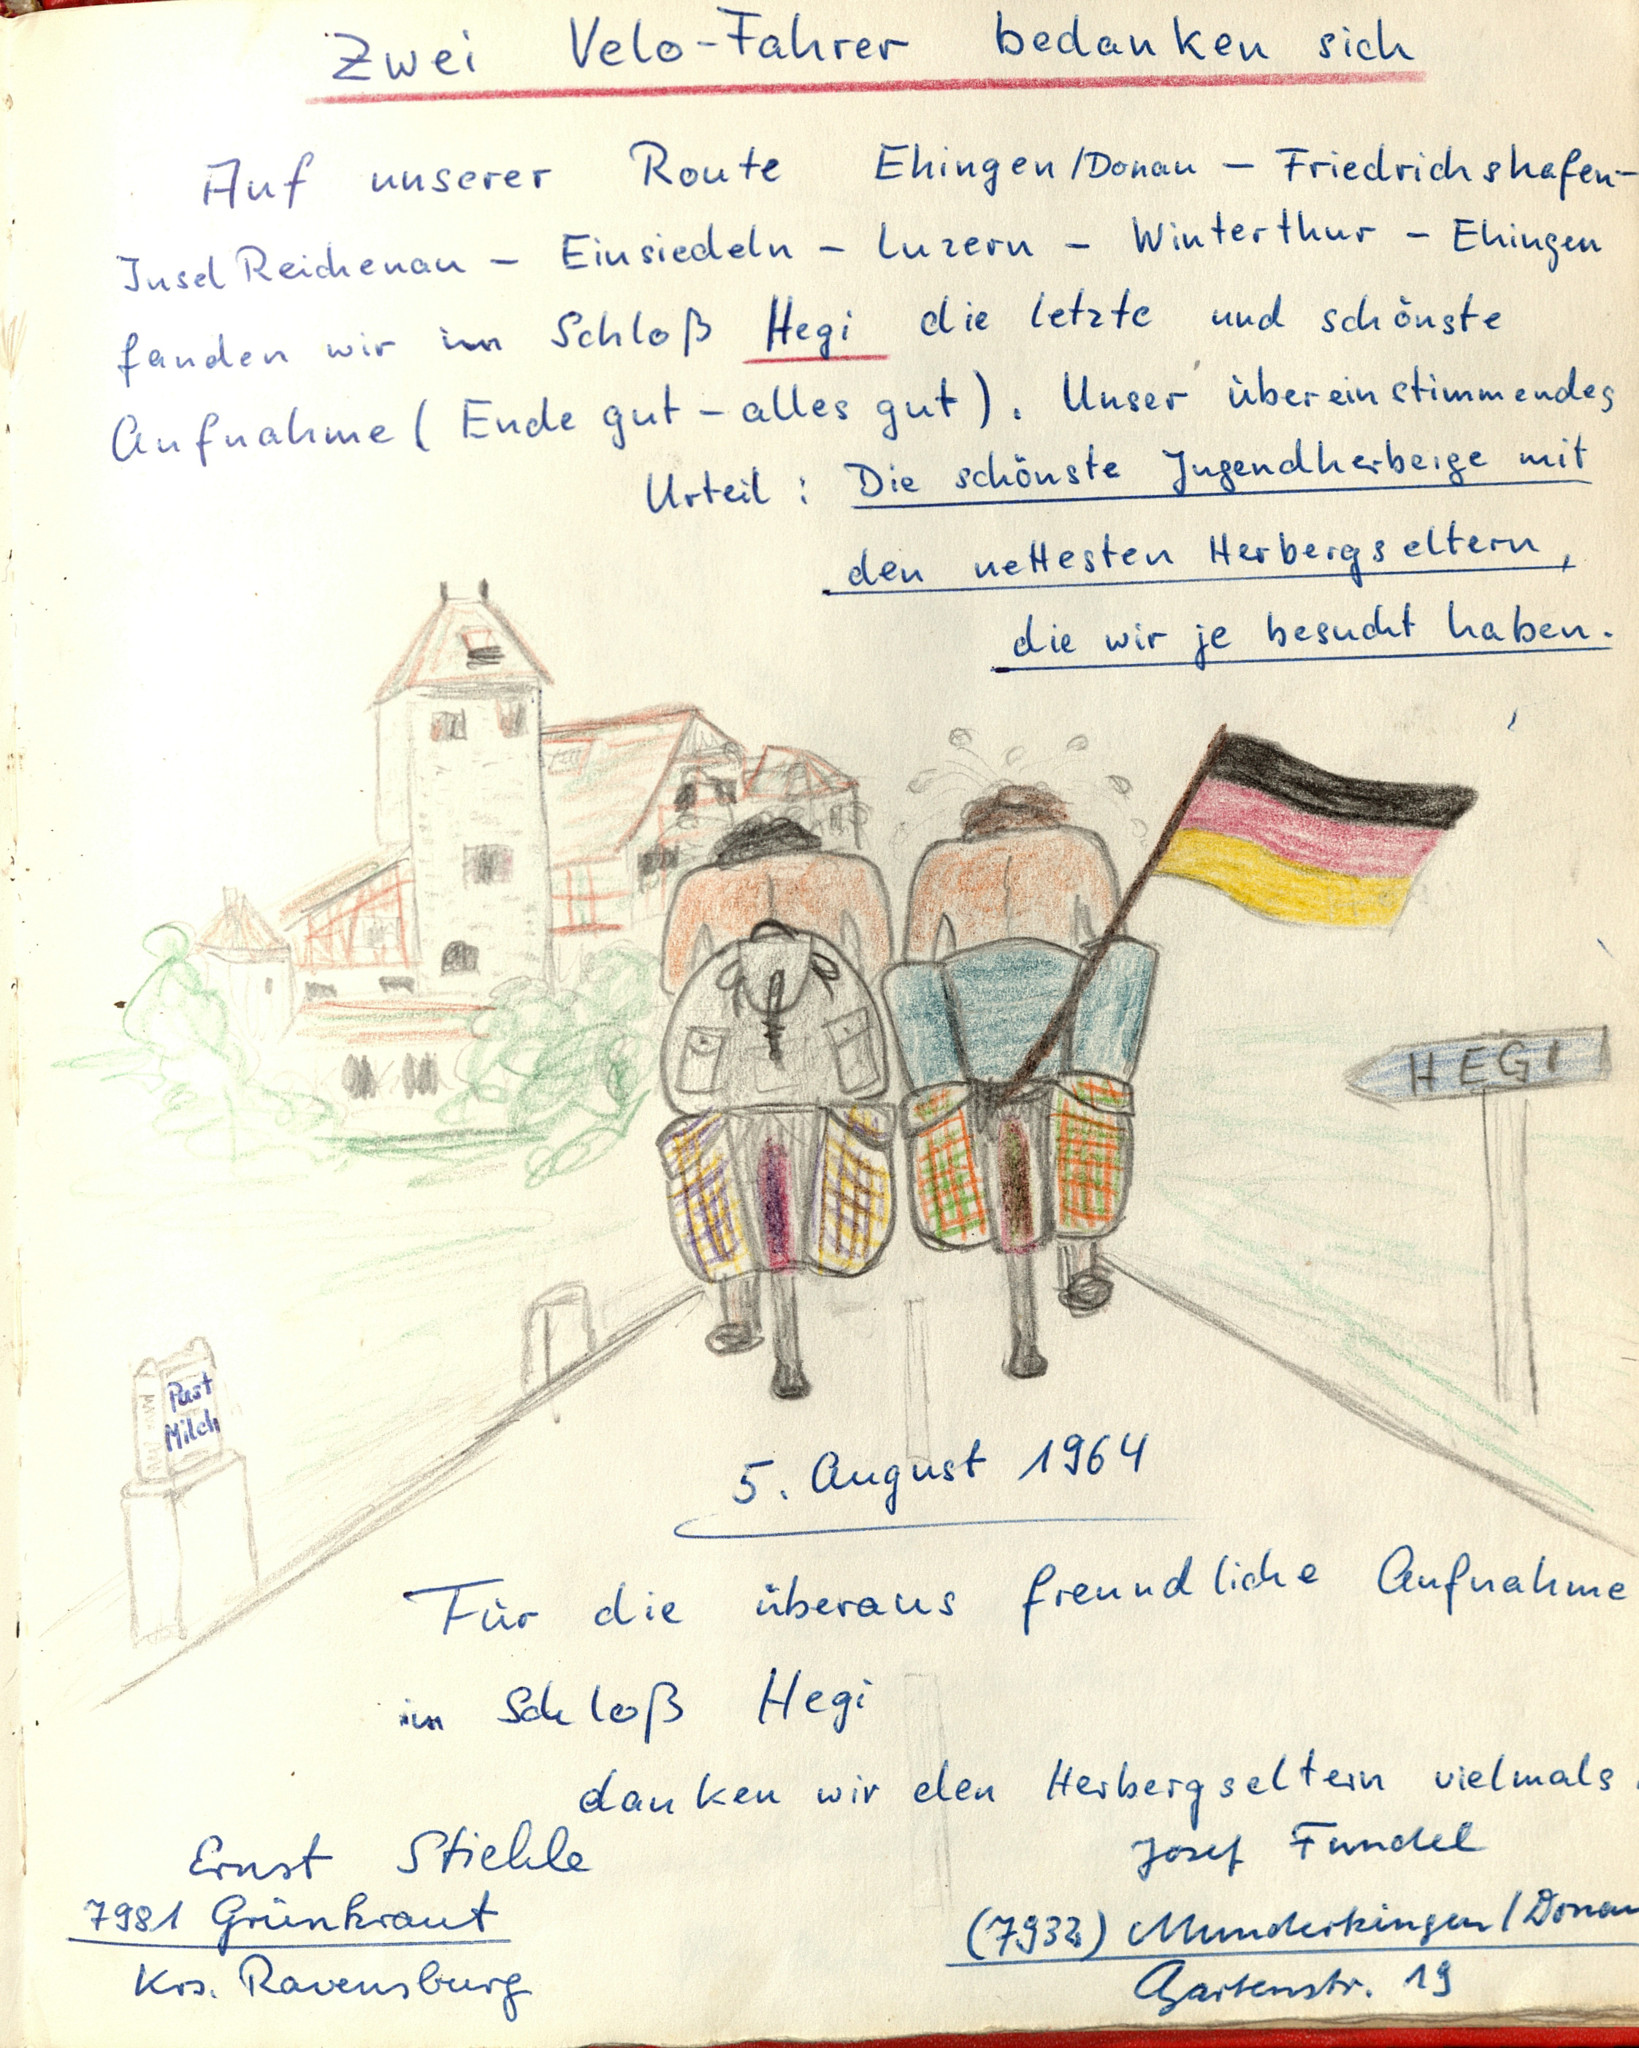 Zwei Velo-Fahrer bedanken sich
Auf unserer Route Ehingen/Donau – Friedrichshafen–
Insel Reichenau – Einsiedeln – Luzern – Winterthur – Ehingen
fanden wir im Schloß Hegi die letzte und schönste
Aufnahme (Ende gut – alles gut). Unser übereinstimmendes
Urteil: Die schönste Jugendherberge mit
den nettesten Herbergseltern,
die wir je besucht haben.
HEGI
Past
Milch
5. August 1964
Für die überaus freundliche Aufnahme
im Schloß Hegi
danken wir den Herbergseltern vielmals.
Ernst Stiehle
7981 Grünkraut
Krs. Ravensburg
Josef Fundel
(7932) Munderkingen/Donau
Gartenstr. 19